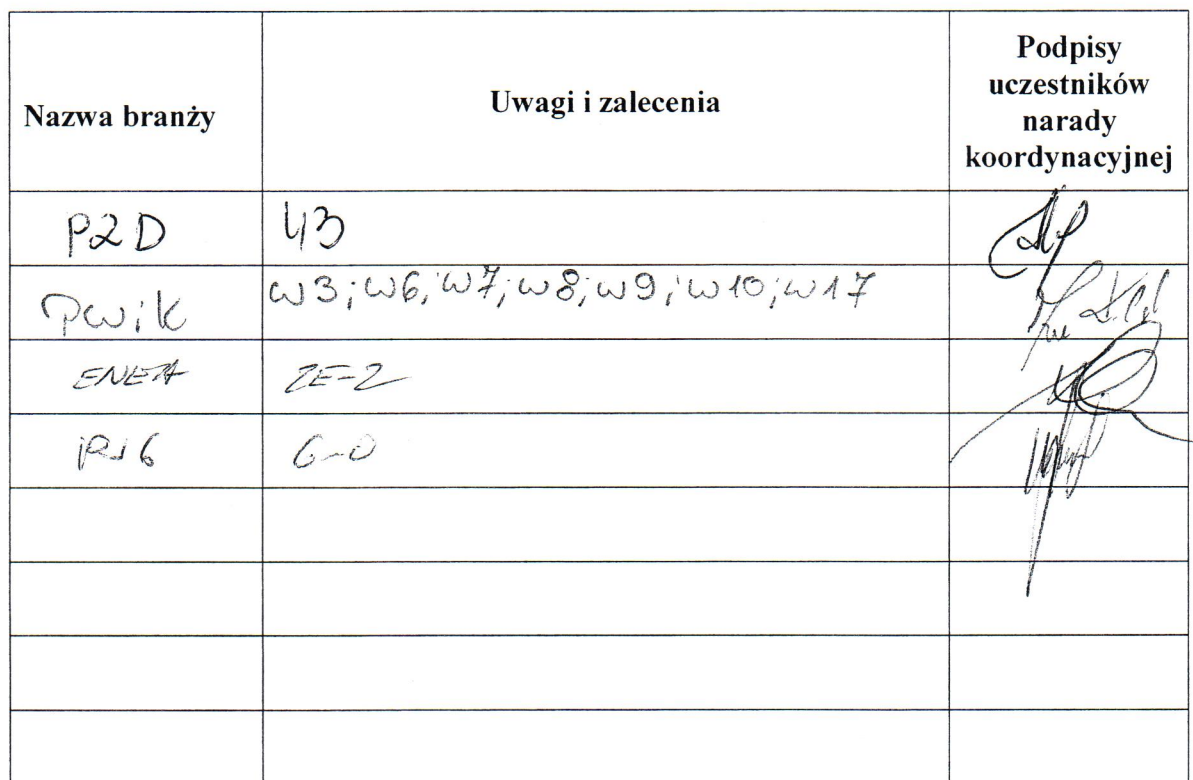 Nazwa branży
Uwagi i zalecenia
Podpisy
uczestników
narady
koordynacyjnej
PZD
43
PWiK
w3; w6; w7; w8; w9; w10; w17
ENEA
ZE-2
G-0